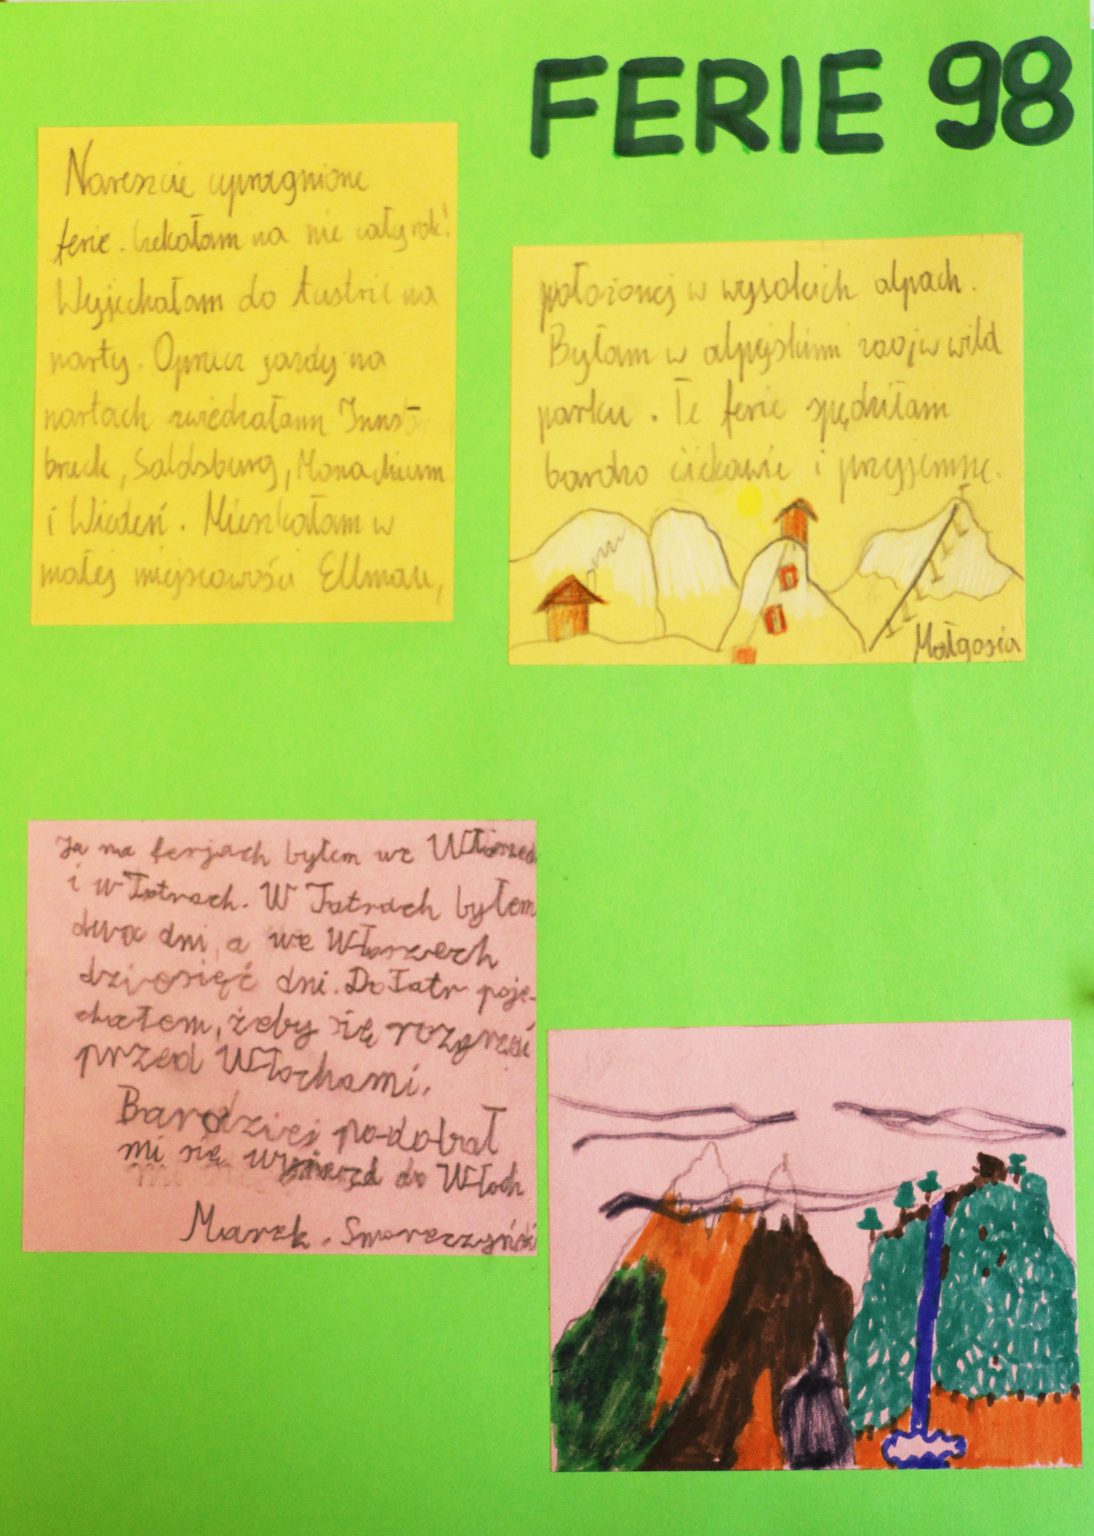 FERIE 98
Nareszcie upragnione
ferie. Czekałam na nie cały rok!
Wyjechałam do Austrii na
narty. Oprucz jazdy na
nartach zwiedzałam Inns-
bruck, Saldsburg, Monachium
i Wiedeń. Mieszkałam w
małej miejscowości Ellmau,
położonej w wysokich alpach.
Byłam w alpejskim zoo w wild
parku. Te ferie spędziłam
bardzo ciekawie i przyjemnie.
Małgosia
Ja na ferjach byłem we Włoszech
i w Tatrach. W Tatrach byłem
dwa dni, a we Włoszech
dziesięć dni. Do Tatr poje-
chałem, żeby się rozgrzać
przed Włochami.
Bardziej podobał
mi się wyjazd do Włoch
Marek